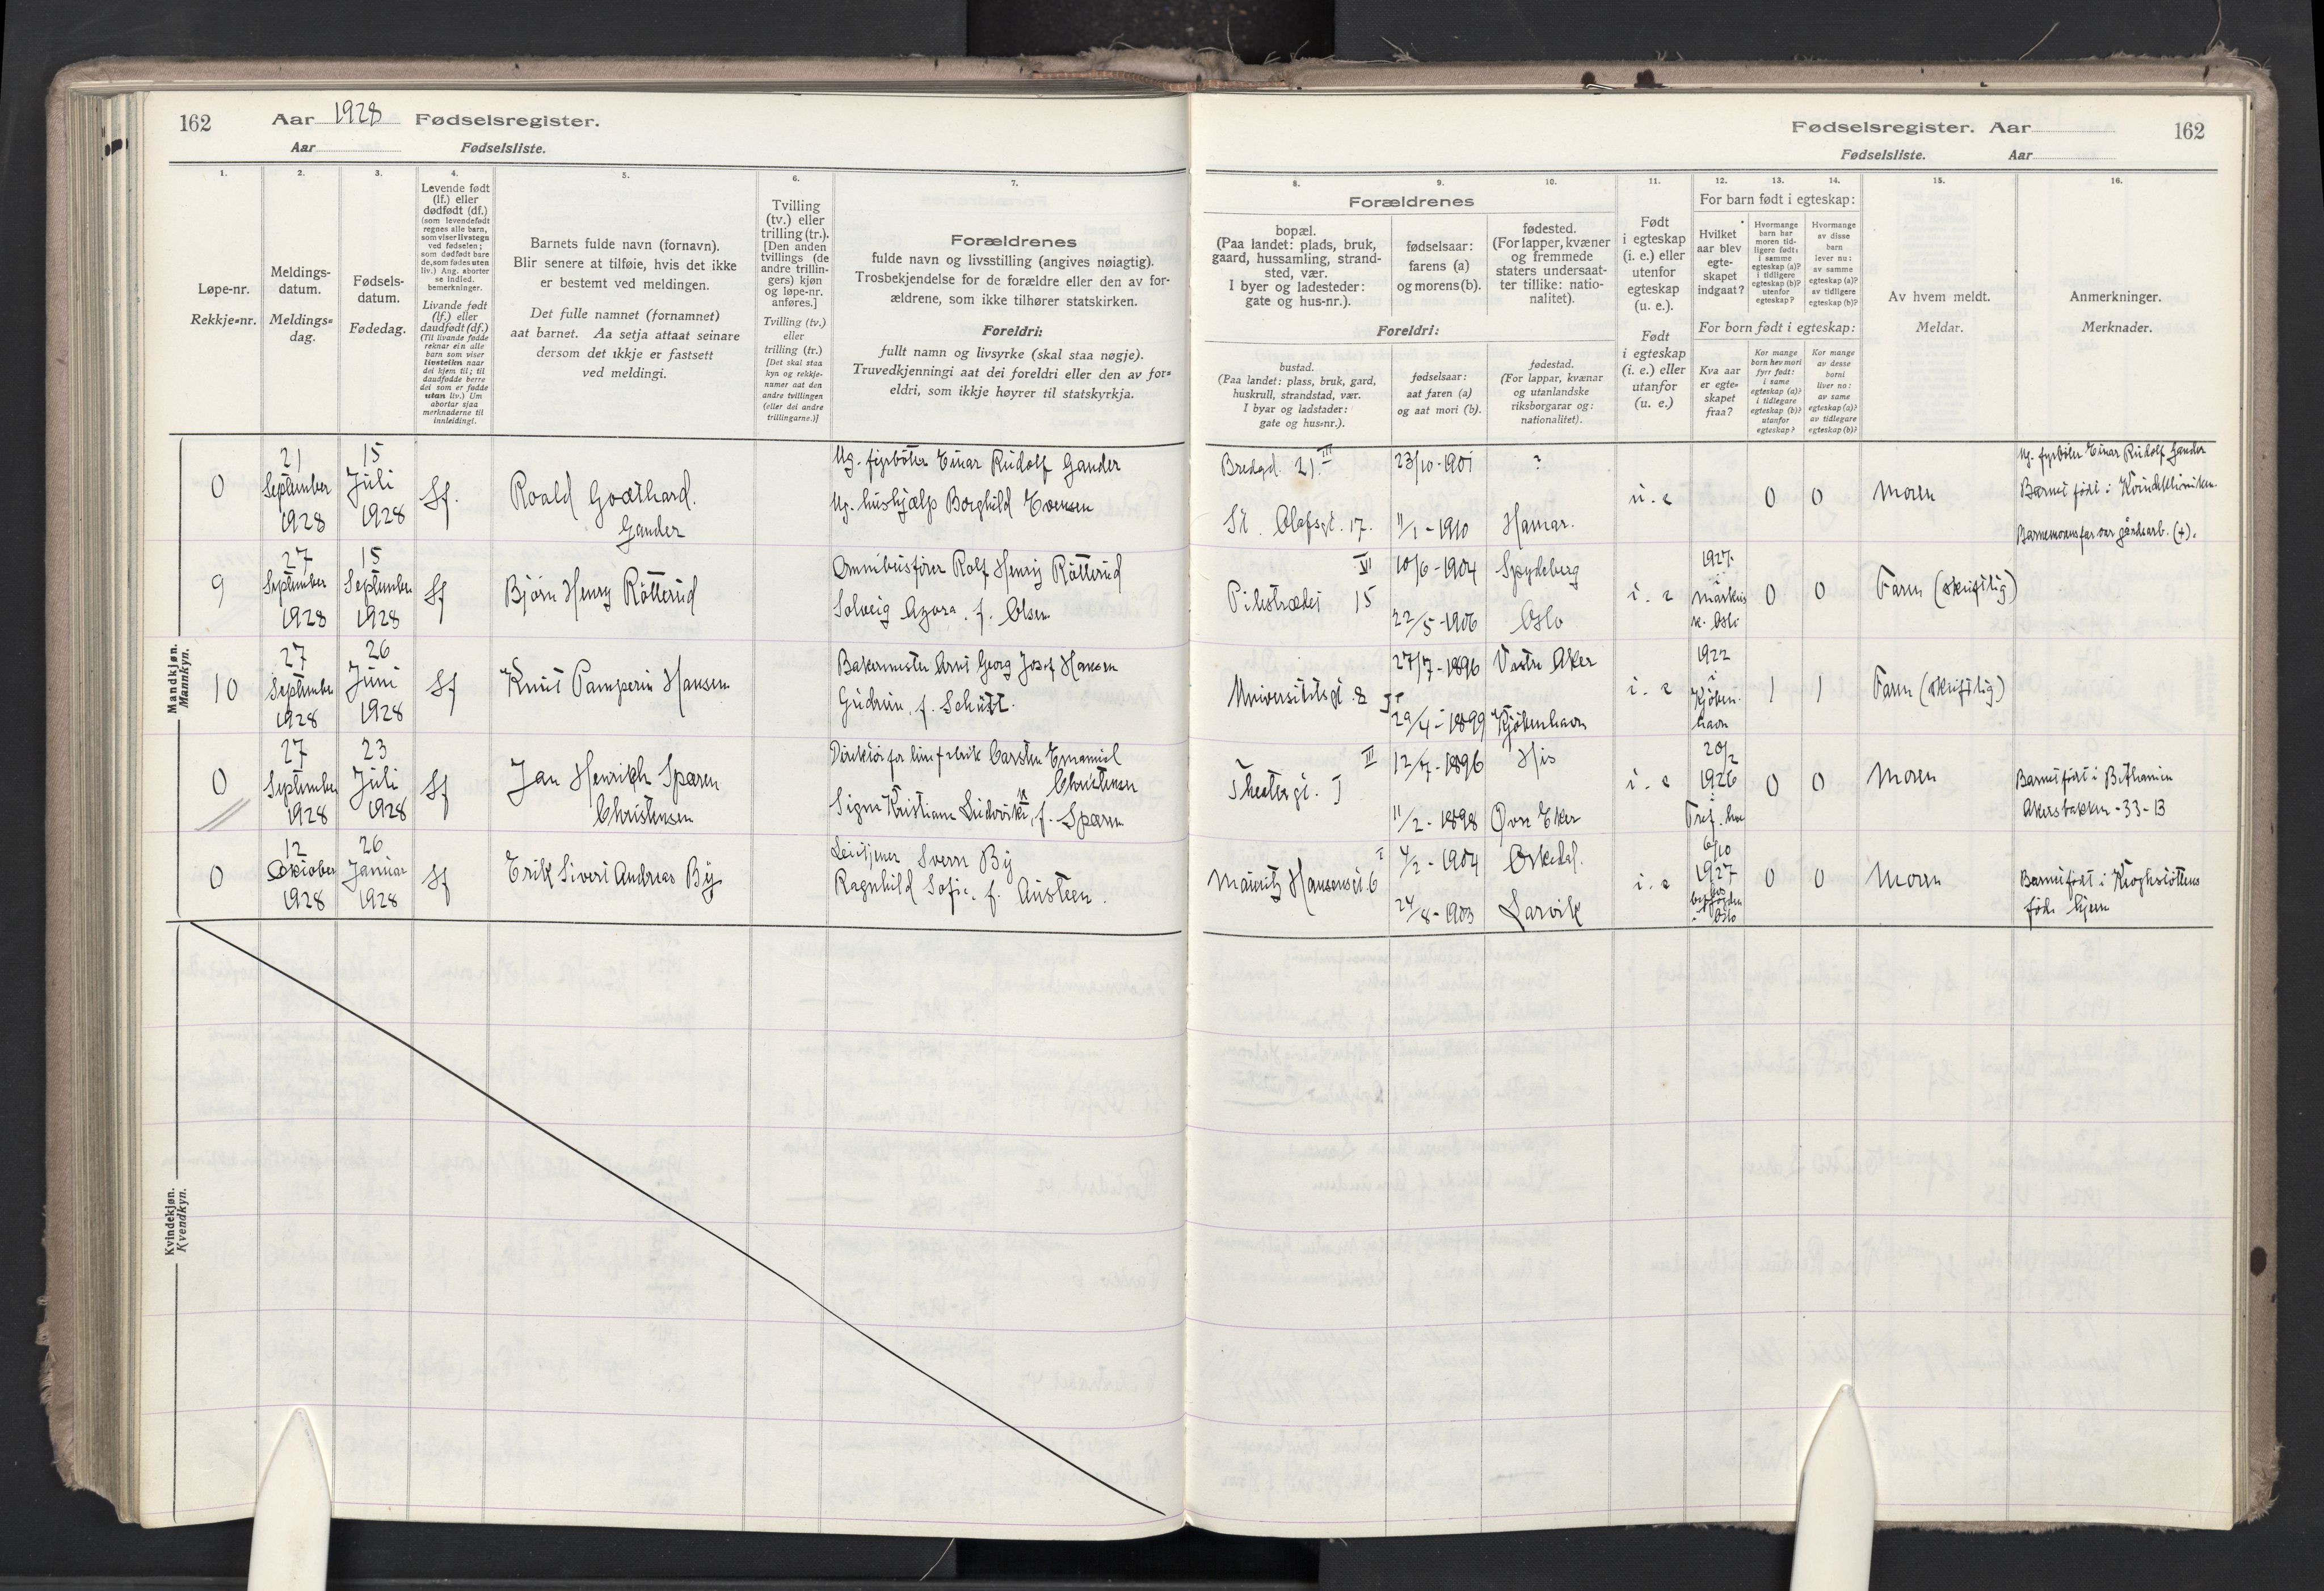 162 Aar 1928 Fødselsregister.
Aar Fødselsliste.
1.
Løpe-nr.
Rekkje=nr.
2.
Meldings-
datum.
Meldings=
dag.
3.
Fødsels-
datum.
Fødedag.
4.
Levende født
(lf.) eller
dødfødt (df.)
(som levendefødt
regnes alle barn,
som viser livstegn
ved fødselen;
som dødfødt bare
de, som fødes uten
liv.) Ang. aborter
se indled.
bemerkninger.
Livande født
(lf.) eller
daudfødt (df.)
(Til livande fødde
reknar ein alle
barn som viser
livsteikn naar
dei kjem til; til
daudfødde berre
dei som er fødde
utan liv.) Um
abortar sjaa
merknaderne til
innleidingi.
5.
Barnets fulde navn (fornavn).
Blir senere at tilføie, hvis det ikke
er bestemt ved meldingen.
Det fulle namnet (fornamnet)
aat barnet. Aa setja attaat seinare
dersom det ikkje er fastsett
ved meldingi.
6.
Tvilling
(tv.) eller
trilling (tr.).
[Den anden
tvillings (de
andre trillin-
gers) kjøn
og løpe-nr.
anføres.]
Tvilling (tv.)
eller
trilling (tr.)
[Det skal staa
kyn og rekkje-
numer aat den
andre tvillingen
(eller dei andre
trillingarne.)]
7.
Forældrenes
fulde navn og livsstilling (angives nøiagtig).
Trosbekjendelse for de forældre eller den av for-
ældrene, som ikke tilhører statskirken.
Foreldri:
fullt namn og livsyrke (skal staa nøgje).
Truvedkjenningi aat dei foreldri eller den av for=
eldri, som ikkje høyrer til statskyrkja.
Mandkjøn.
Mannkyn.
0
21
September
1928
15
Juli
1928
Lf.
Roald Godthard.
Gander
Ug. fyrbøter Einar Rudolf Gander
Ug. hushjælp Borghild Evensen
9
27
September
1928
15
September
1928
Lf
Bjørn Henry Rötterud
Omnibusfører Rolf Henry Rötterud
Solveig Agora. f. Olsen
10
27
September
1928
26
Juni
1928
Lf
Knut Pamperin Hansen
Bakermester Arni Georg Josef Hansen
Gudrun, f. Schütt.
0
27
September
1928
23
Juli
1928
Lf
Jan Henrikh Sparen
Christensen
Direktör for limfabrik Carsten Emanuel
Christensen
Signe Kristiane Ludovikke, f. Sparen
0
12
Oktober
1928
26
Januar
1928
Lf
Erik Sivert Andreas By
Sverre By
Ragnhild Sofie. f. Austeen.
Kvindekjøn.
Kvendkyn.
Fødselsregister. Aar 162
Fødselsliste. Aar
8.
Forældrenes
bopæl.
(Paa landet: plads, bruk,
gaard, hussamling, strand-
sted, vær.
I byer og ladesteder:
gate og hus-nr.).
Foreldri:
bustad.
(Paa landet: plass, bruk, gard,
huskrull, strandstad, vær.
I byar og ladstader:
gate og hus=nr.).
9.
fødselsaar:
farens (a)
og morens (b).
fødselsaar:
aat faren (a)
og aat mori (b).
10.
fødested.
(For lapper, kvæner
og fremmede
staters undersaat-
ter tillike: natio-
nalitet).
fødestad.
(For lappar, kvænar
og utanlandske
riksborgarar og:
nationalitet).
11.
Født
i egteskap
(i. e.) eller
utenfor
egteskap
(u. e.).
Født
i egteskap
(i. e.) eller
utanfor
(u. e.)
12. 13. 14.
For barn født i egteskap:
Hvilket
aar blev
egte-
skapet
indgaat?
Hvormange
barn har
moren tid-
ligere født:
i samme
egteskap (a)?
i tidligere
egteskap (b)?
utenfor
egteskap?
Hvormange
av disse
barn
lever nu:
av samme
egteskap (a)?
av tidligere
egteskap (b)?
For born født i egteskap:
Kva aar
er egte=
skapet
fraa?
Kor mange
born hev mori
fyrr født:
i same
egteskap (a)?
i tidlegare
egteskap (b)?
utanfor
egteskap?
Kor mange
av desse
borni
liver no:
av same
egteskap (a)?
av tidlegare
egteskap (b)?
15.
Av hvem meldt.
Meldar.
16.
Anmerkninger.
Merknader.
Bredgd. 21 III
23/10-1901
?
St. Olafsgt. 17.
11/1-1910
Hamar.
u. e
0
0
Moren
Ug. fyrbøter Einar Rudolf Gander
Barnet født i Kvindeklinikken.
Barnemorens far var gårdsarb. (+).
Pilestrædet 15 VI
10/6-1904
Spydeberg
22/5-1906
Oslo
i. e
1927
i
Markus
k. Oslo
0
0
Faren (skriftlig)
Universitetsgt. 8
27/7-1896
Vestre Aker
29/4-1899
Kjøbenhavn
i. e
1922
i
Kjøben-
havn
1
1
Faren (skriftlig)
Theatergt. 1 III
12/7-1896
His
11/2-1898
Øvre Eker
i. e
20/2
1926
i
Tref. ke
0
0
Moren
Barnet født i Bethanien
Akersbakken - 33 - 13
Mauritz Hansensgt. 6 I
4/2-1904
Oskedal.
24/8-1903
Larvik
i. e
6/10
1927
hos
byfogden
i Oslo
0
0
Moren
Barnet født i Kroghstøttens
føde hjem